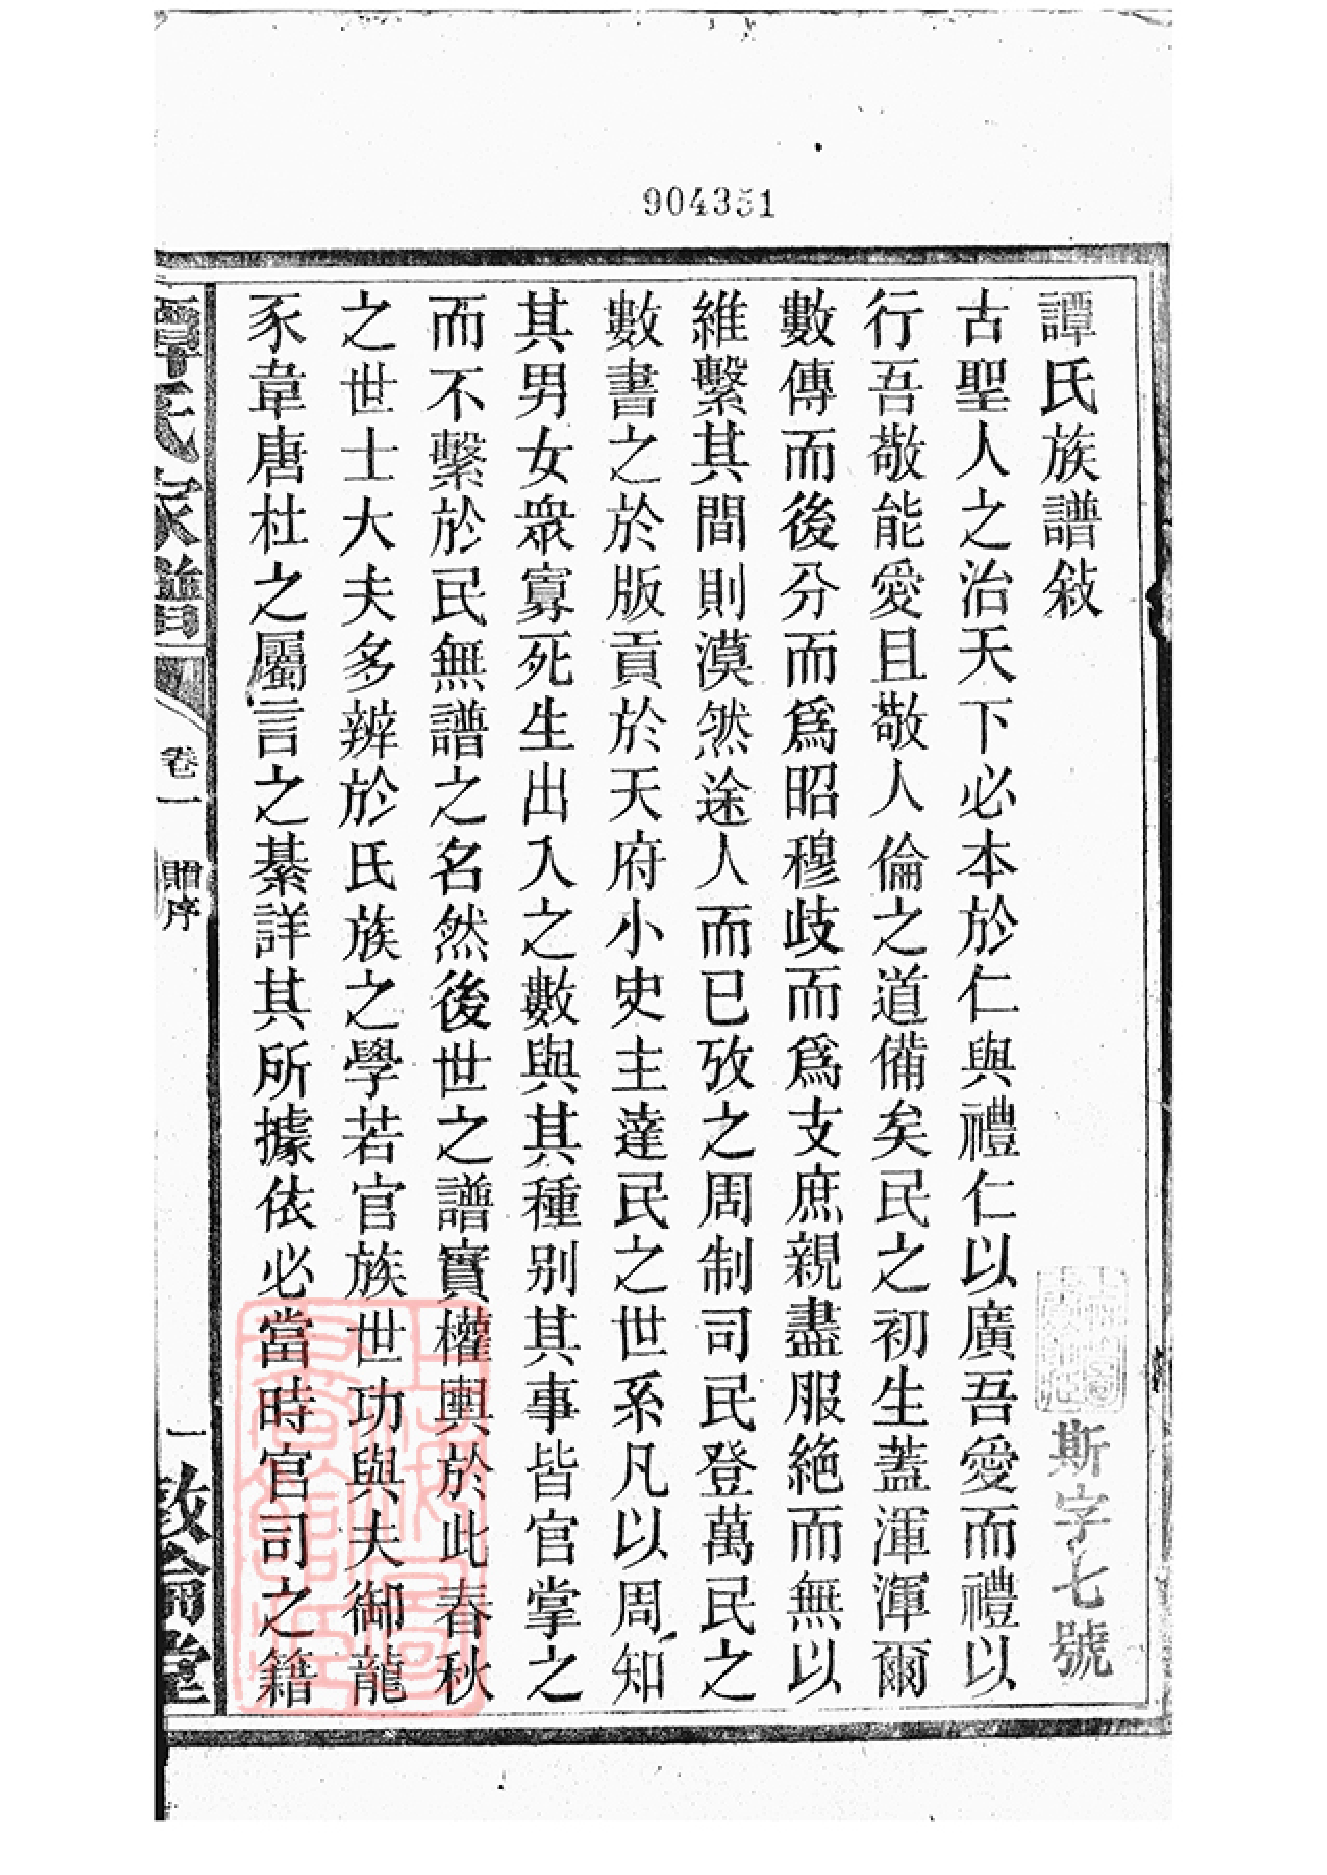 904351
譚氏族譜敍
斯字七號
古聖人之治天下必本於仁與禮仁以廣吾愛而禮以
行吾敬能愛且敬人倫之道備矣民之初生蓋渾渾爾
數傳而後分而爲昭穆歧而爲支庶親盡服絶而無以
維繫其間則漠然途人而已攷之周制司民登萬民之
數書之於版貢於天府小史主達民之世系凡以周知
其男女衆寡死生出入之數與其種别其事皆官掌之
而不繫於民無譜之名然後世之譜實權輿於此春秋
之世士大夫多辨於氏族之學若官族世功與夫御龍
豕韋唐杜之屬言之綦詳其所據依必當時官司之籍
譚氏家譜
卷一
贈序
一
敦倫堂